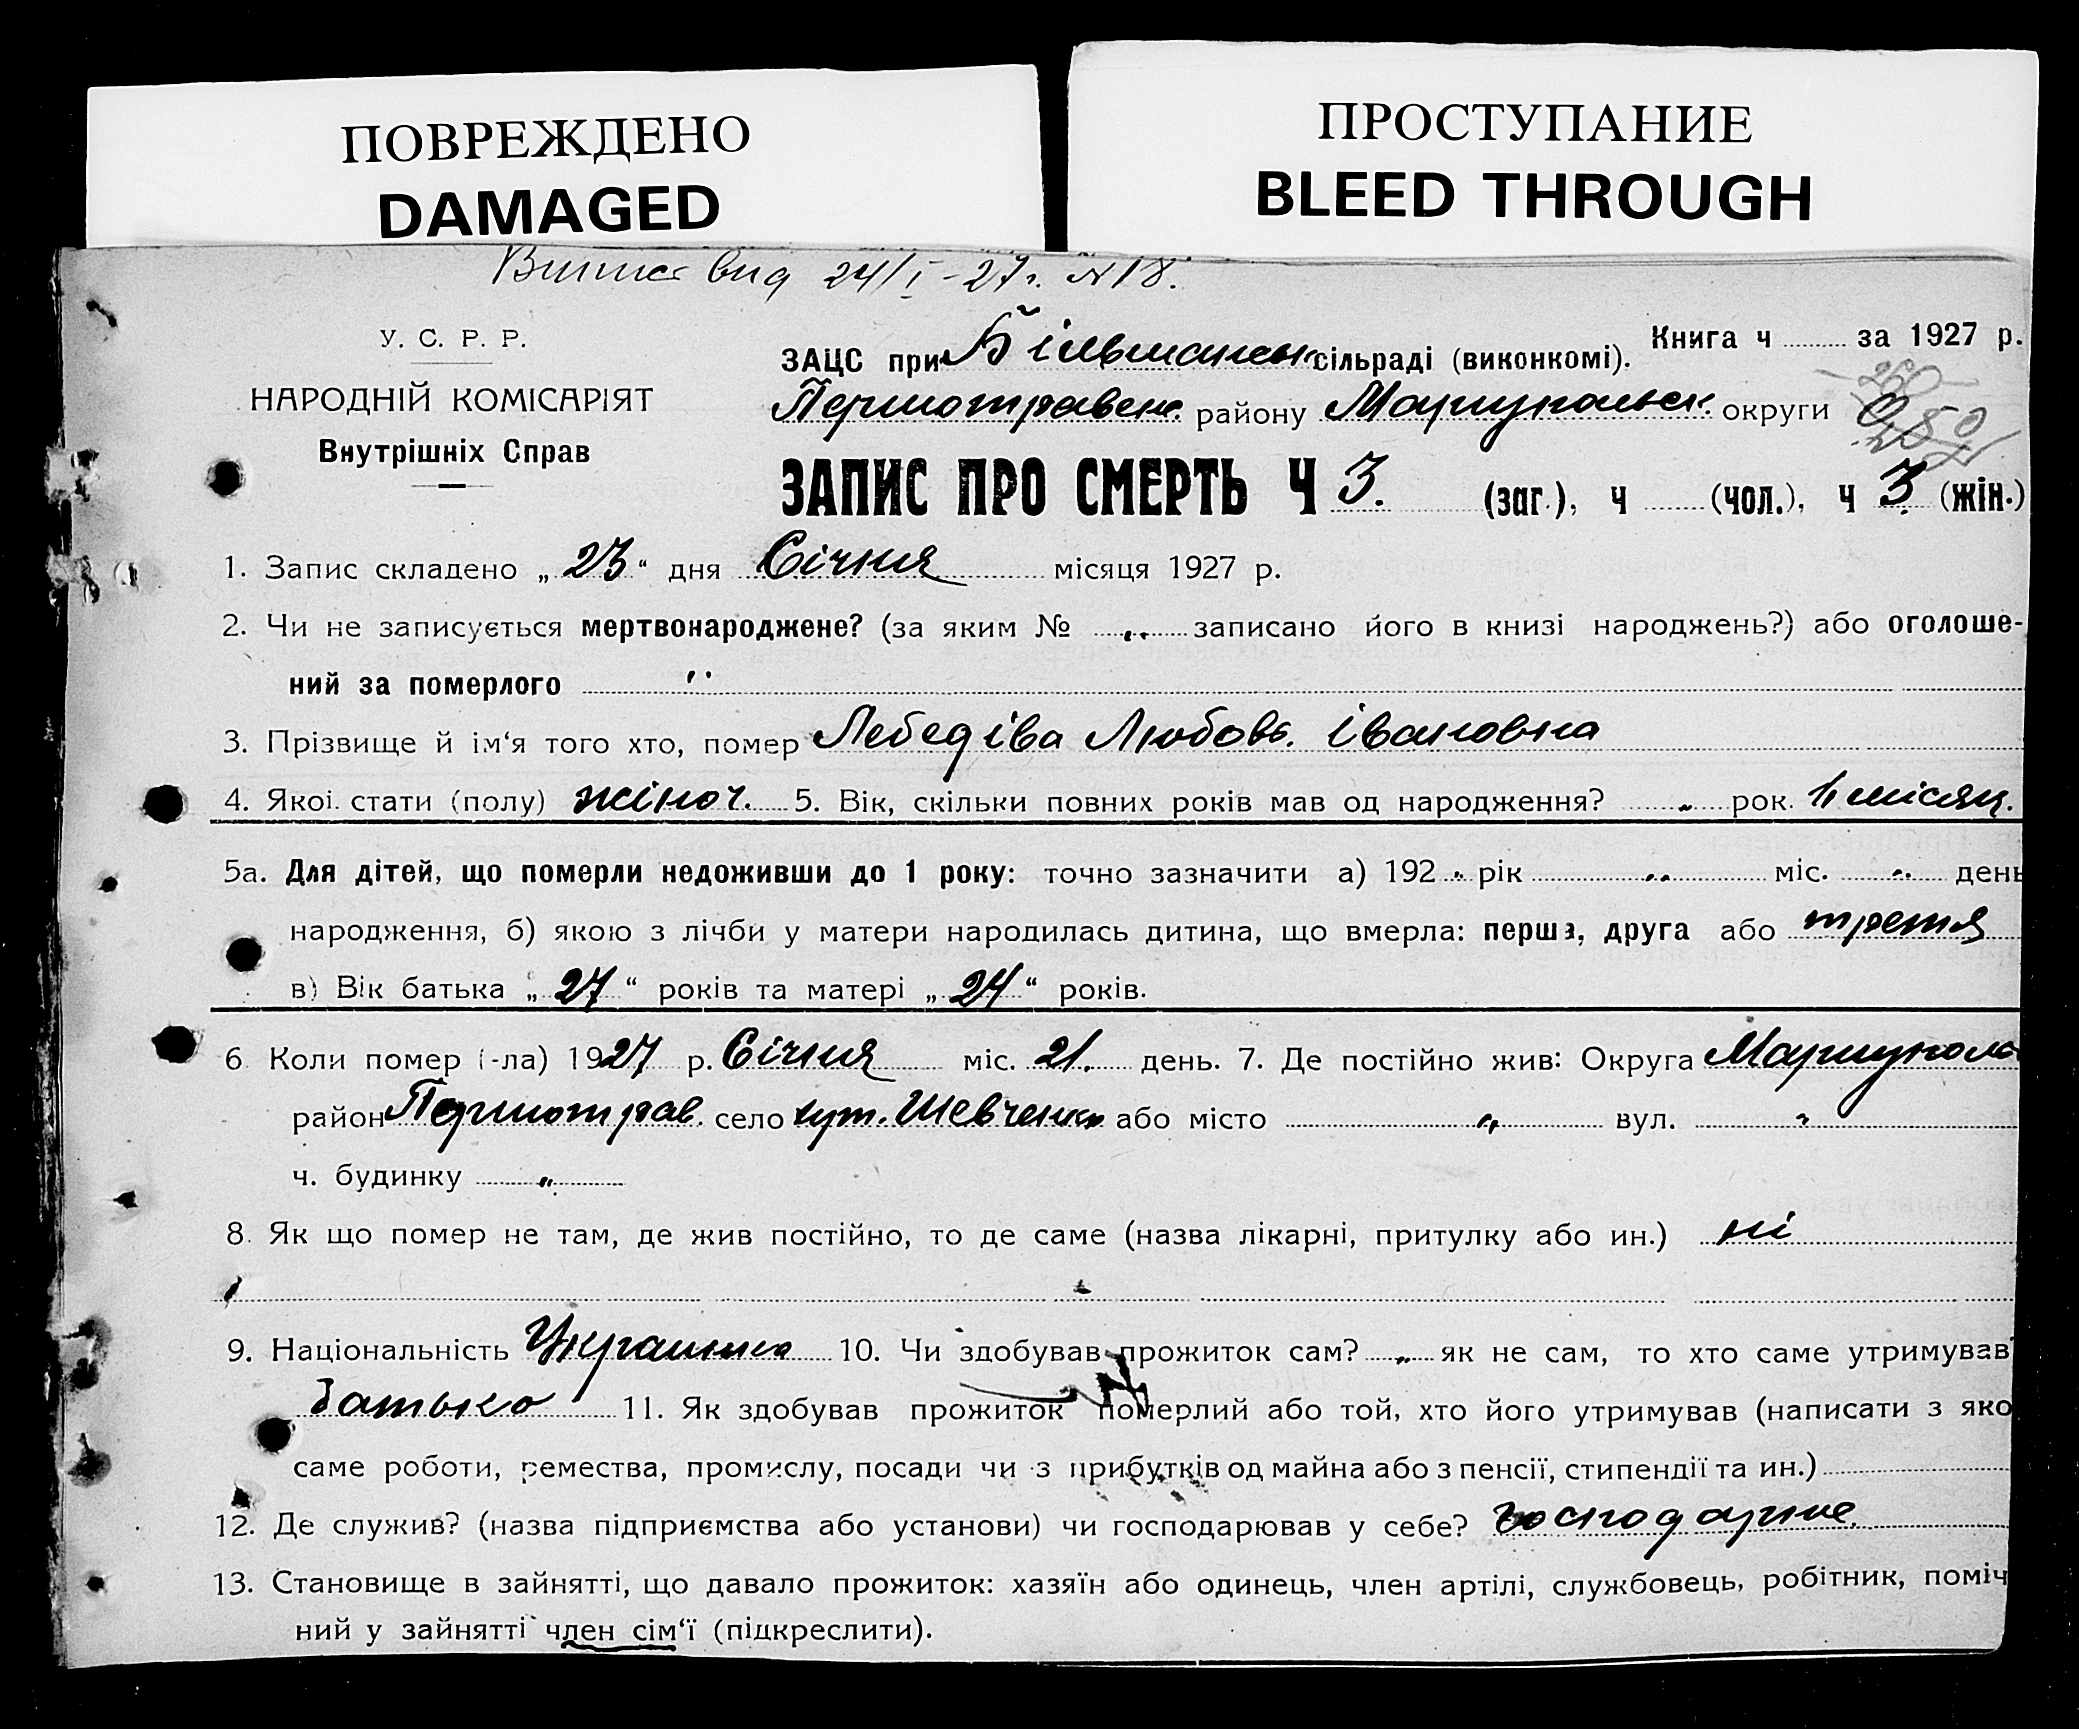 ПОВРЕЖДЕНО
DAMAGED
ПРОСТУПАНИЕ
BLEED THROUGH
24/I-27г. №18.
У. С. Р. Р.
НАРОДНІЙ КОМІСАРІЯТ
Внутрішніх Справ
Книга ч за 1927 р.
ЗАЦС при Більманськ сільраді (виконкомі).
Першотравенс. району Маріупольськ. округи
250
ЗАПИС ПРО СМЕРТЬ Ч 3. (заг.), ч (чол.), ч 3. (жін.)
1. Запис складено „ 23 “ дня Січня місяця 1927 р.
2. Чи не записується мертвонароджене? (за яким № „ записано його в книзі народжень?) або оголоше-
ний за померлого „
3. Прізвище й ім‘я того хто, помер Лебедіва Любовь. Івановна
4. Якоі. стати (полу) жіноч. 5. Вік, скільки повних років мав од народження? „ рок. місяц.
5а. Для дітей, що померли недоживши до 1 року: точно зазначити а) 192 „ рік „ міс. „ день
народження, б) якою з лічби у матери народилась дитина, що вмерла: перша, друга або третя
в) Вік батька „ 27 “ років та матері „ 24 “ років.
6 Коли помер (-ла) 1927 р. Січня міс. 21. день. 7. Де постійно жив: Округа Маріуполь
район Першотрав. село хут. Шевченко або місто „ вул. „
ч. будинку „
8. Як що помер не там, де жив постійно, то де саме (назва лікарні, притулку або ин.) ні
9. Національність Украинка 10. Чи здобував прожиток сам? „ як не сам, то хто саме утримував
батько 11. Як здобував прожиток померлий або той, хто його утримував (написати з яко
саме роботи, ремества, промислу, посади чи з прибутків од майна або з пенсії, стипендії та ин.)
12. Де служив? (назва підприємства або установи) чи господарював у себе?
13. Становище в зайнятті, що давало прожиток: хазяїн або одинець, член артілі, службовець, робітник, поміч
ний у зайнятті член сім‘ї (підкреслити).